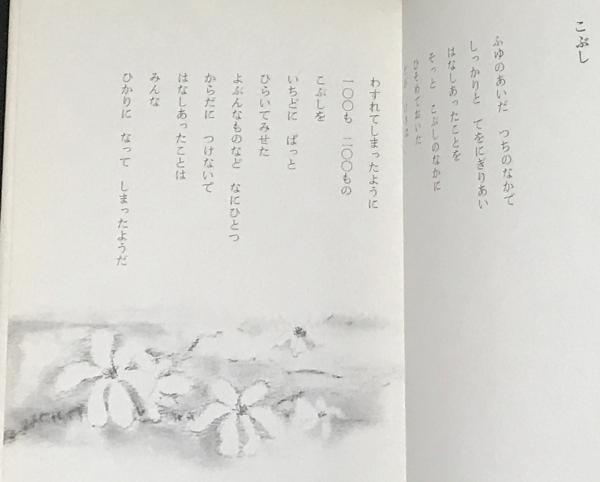 こぶし
ふゆのあいだ　つちのなかで
しっかりと　てをにぎりあい
はなしあったことを
そっと　こぶしのなかに
ひそめておいた
わすれてしまったように
一〇〇も　二〇〇もの
こぶしを
いちどに　ぱっと
ひらいてみせた
よぶんなものなど　なにひとつ
からだに　つけないで
はなしあったことは
みんな
ひかりに　なって　しまったようだ